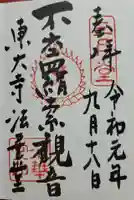 奉拝
令和元年
九月十八日
不空羂索観音
東大寺法華堂